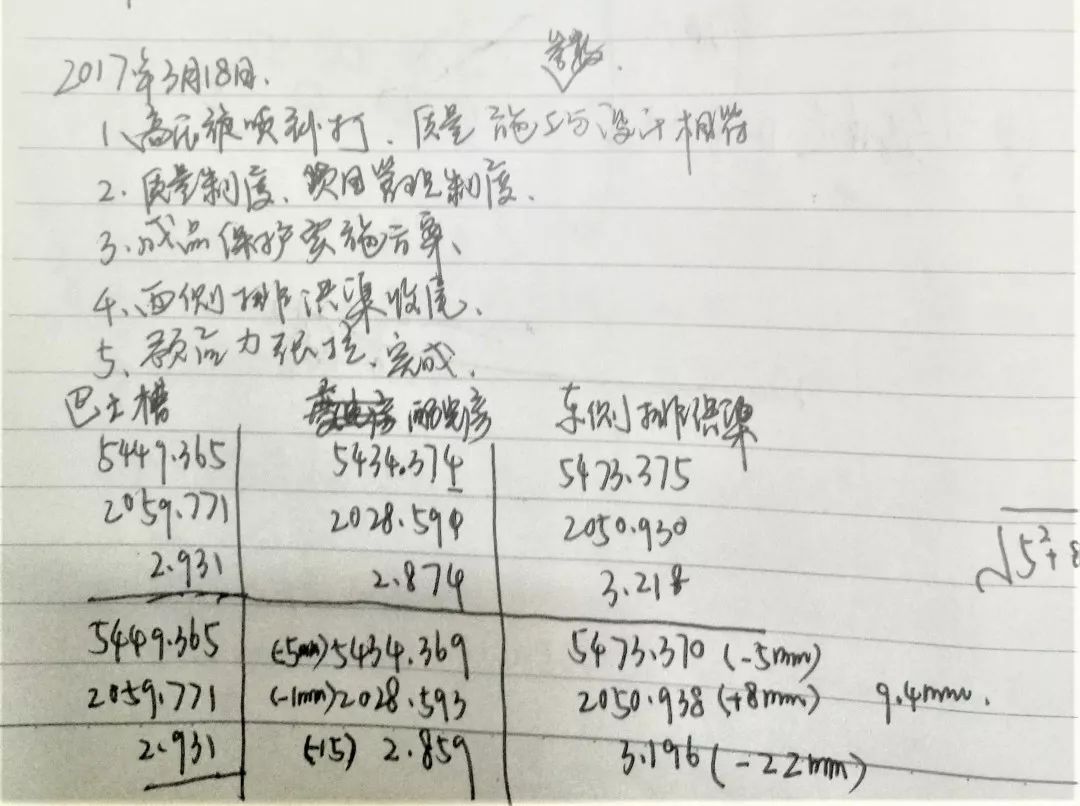 参数
2017年3月18日.
1、高压旋喷补打.质量 施工与设计相符
2.质量制度、项目管理制度.
3.成品保护实施方案、
4、西侧排洪渠收尾、
5、预应力张拉、完成.
巴士槽 配电房 东侧排洪渠
5449.365 5434.374 5473.375
2059.771 2028.594 2050.930
2.931 2.874 3.218
√5²+8
5449.365 (-5mm)5434.369 5473.370(-5mm)
2059.771 (-1mm)2028.593 2050.938(+8mm) 9.4mm.
2.931 (-15) 2.859 3.196(-22mm)